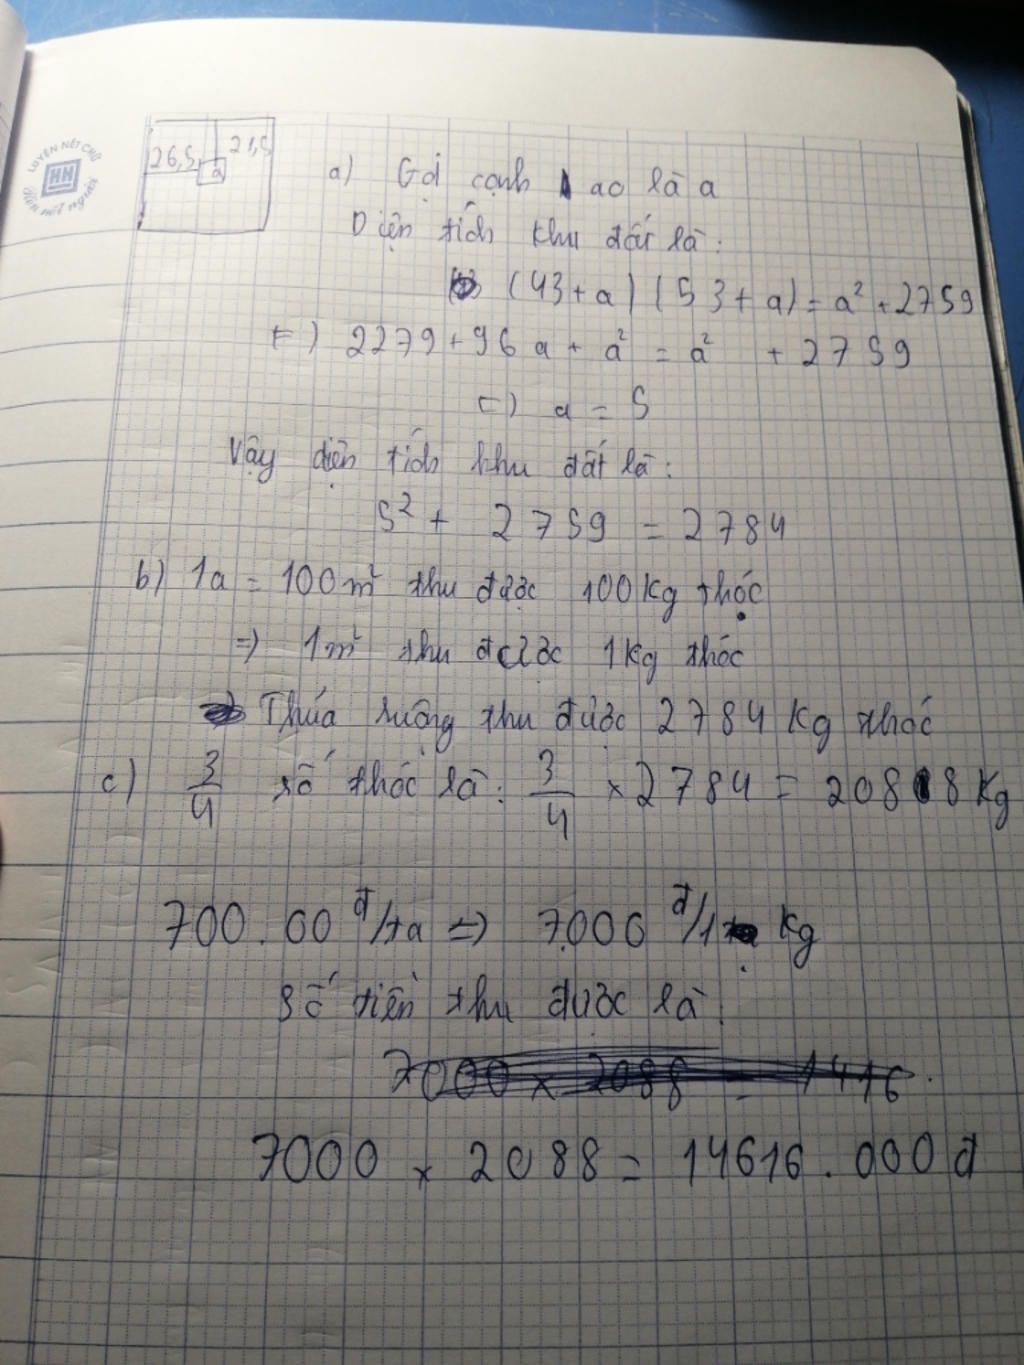 LUYỆN NÉT CHỮ
HH
Rèn nết người
26,5 21,5
a
a) Gọi cạnh ao là a
Diện tích khu đất là:
(43+a)(53+a) = a² + 2759
2279 + 96a + a² = a² + 2759
a = 5
Vậy diện tích khu đất là:
5² + 2759 = 2784
b) 1a = 100m² thu được 100kg thóc
=) 1m² thu được 1kg thóc
Thửa ruộng thu được 2784 kg thóc
c) 3/4 số thóc là: 3/4 × 2784 = 2088 kg
700.00 đ/tạ =) 7000 đ/1 kg
Số tiền thu được là:
7000 × 2088 = 1416
7000 × 2088 = 14616.000 đ